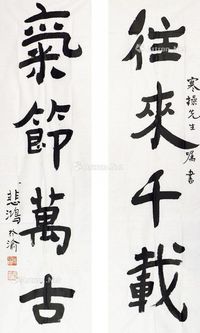 往來千載
寒操先生屬書
氣節萬古
悲鴻於渝